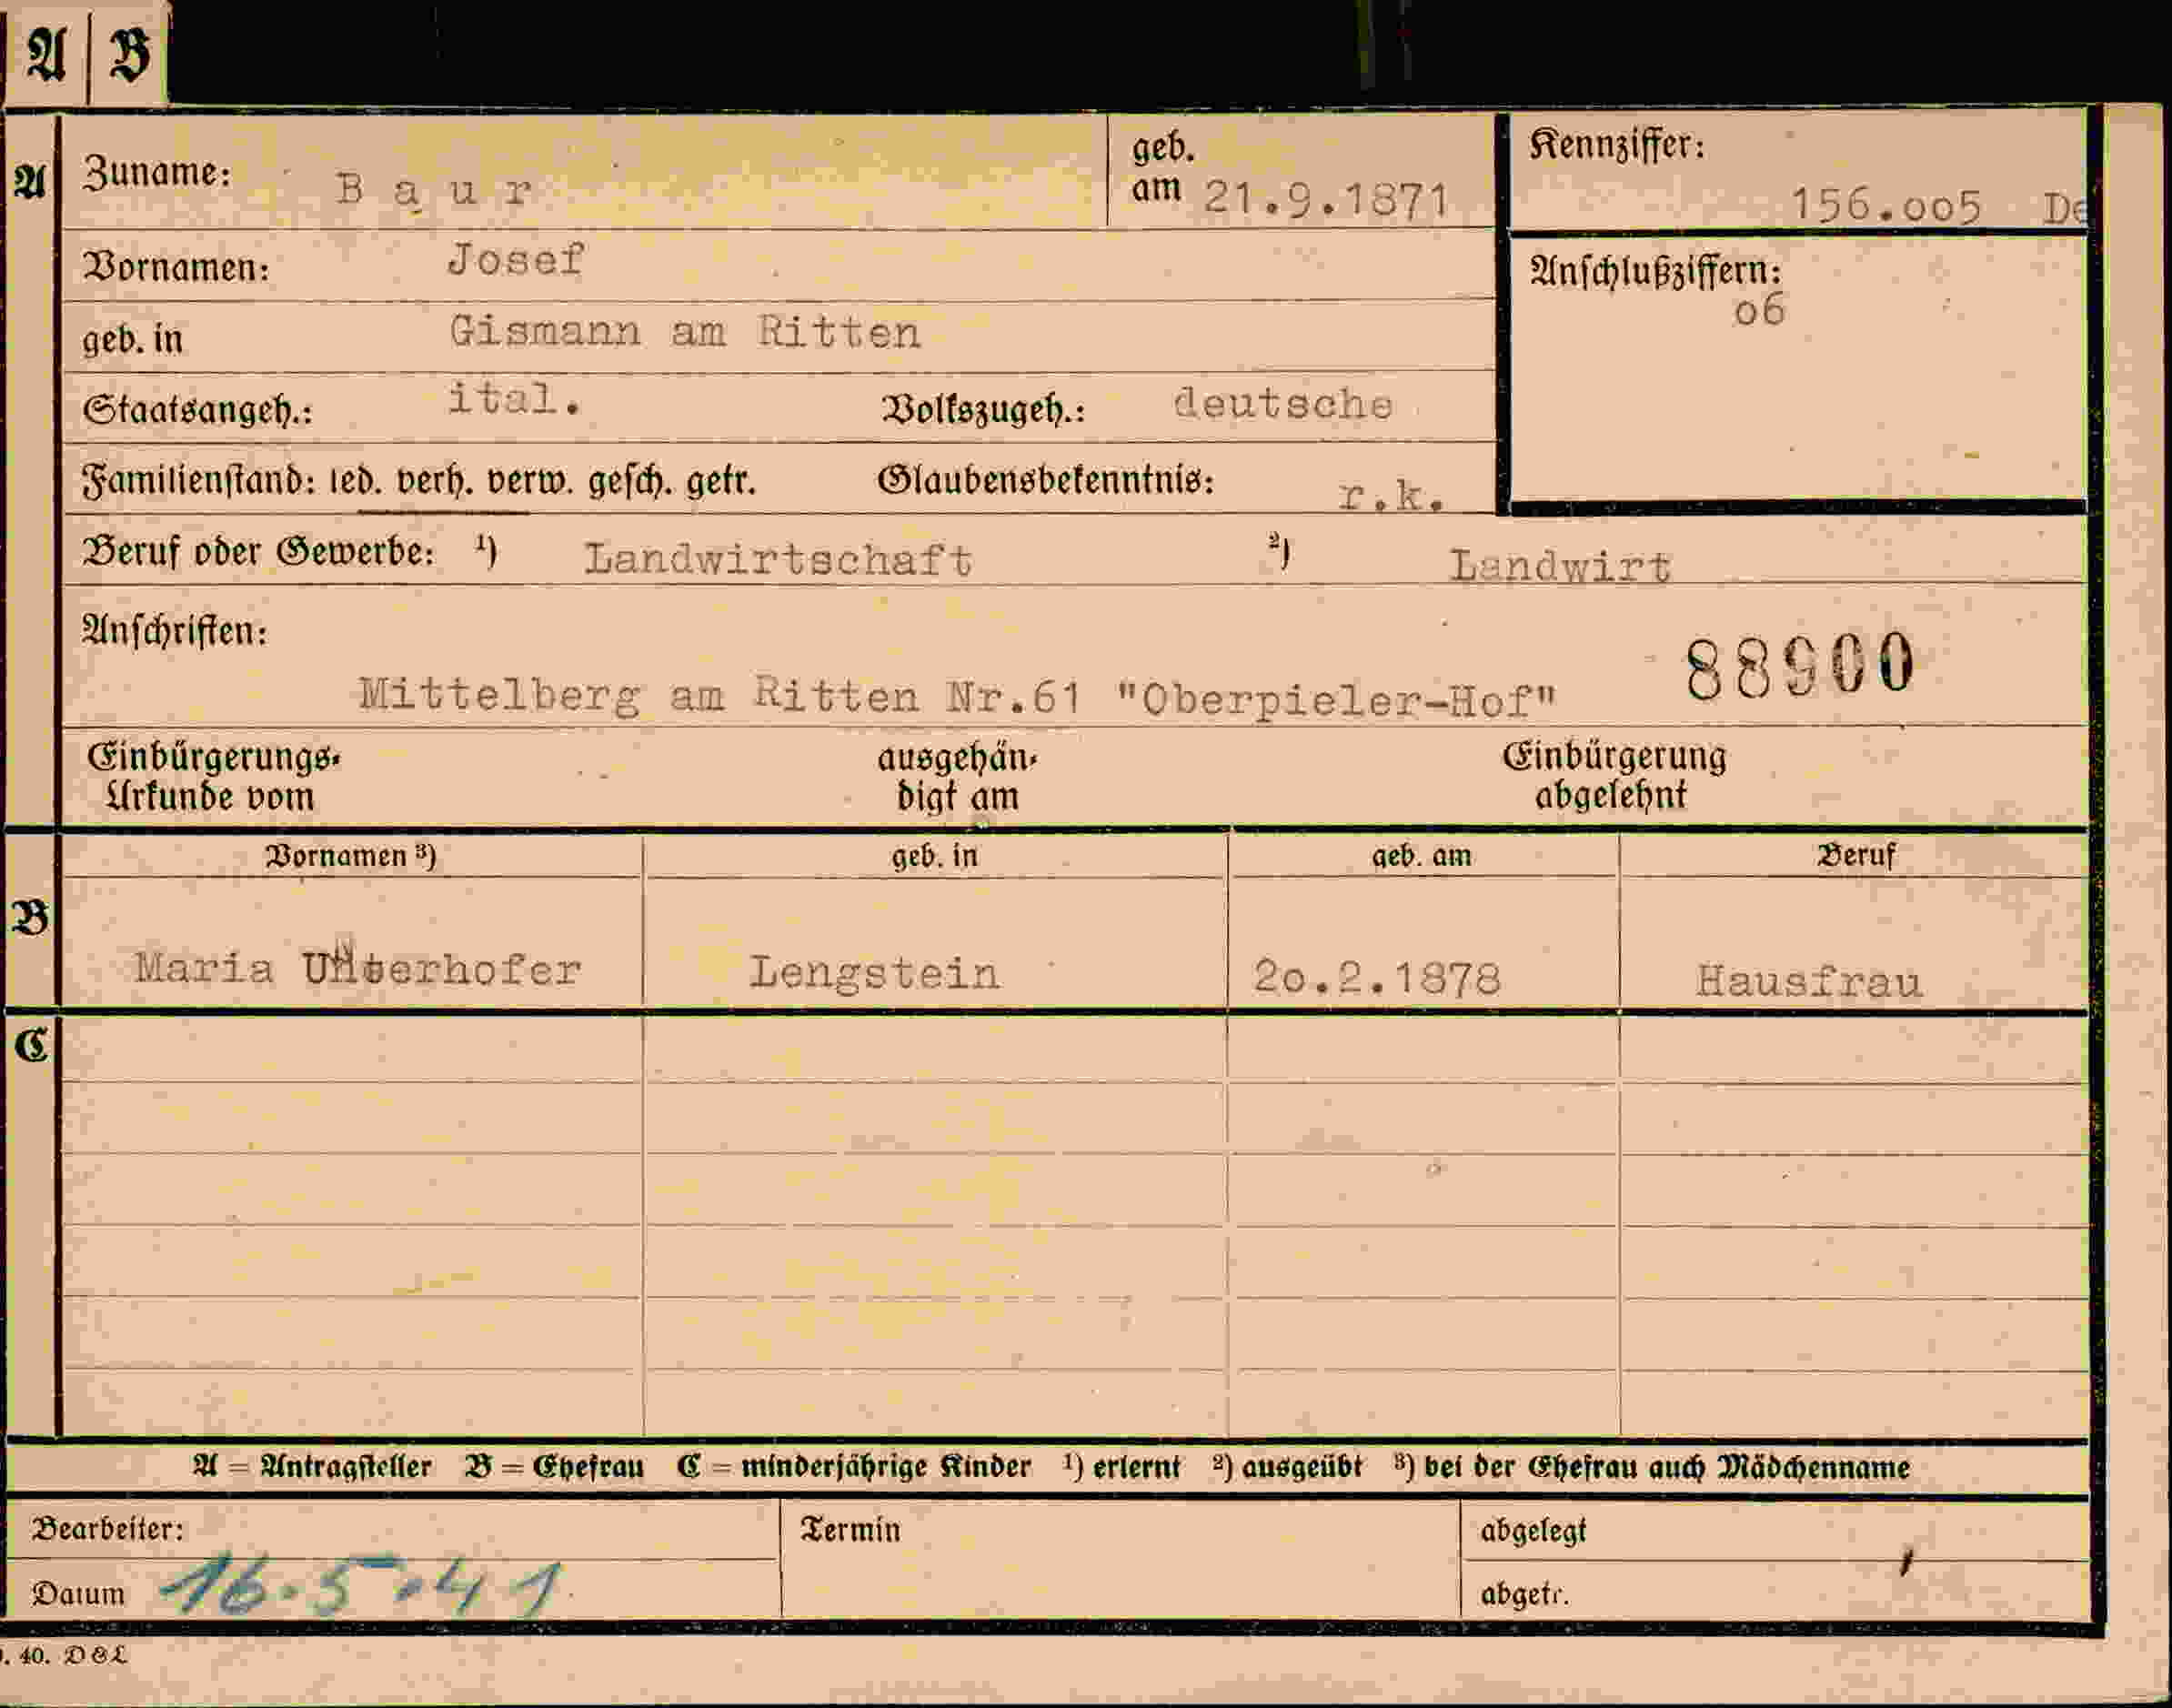 A B
A Zuname: B a u r geb. am 21.9.1871 Kennziffer: 156.oo5 De
Vornamen: Josef Anschlußziffern: o6
geb. in Gismann am Ritten
Staatsangeh.: ital. Volkszugeh.: deutsche
Familienstand: led. verh. verw. gesch. getr. Glaubensbekenntnis: r.k.
Beruf oder Gewerbe: ¹) Landwirtschaft ²) Landwirt
Anschriften: 88900
Mittelberg am Ritten Nr.61 "Oberpieler-Hof"
Einbürgerungs- ausgehän- Einbürgerung
Urkunde vom digt am abgelehnt
Vornamen ³) geb. in geb. am Beruf
B
Maria Unterhofer Lengstein 2o.2.1878 Hausfrau
C
A = Antragsteller B = Ehefrau C = minderjährige Kinder ¹) erlernt ²) ausgeübt ³) bei der Ehefrau auch Mädchenname
Bearbeiter: Termin abgelegt
Datum 16.5.41 abgetr.
. 40. D&L